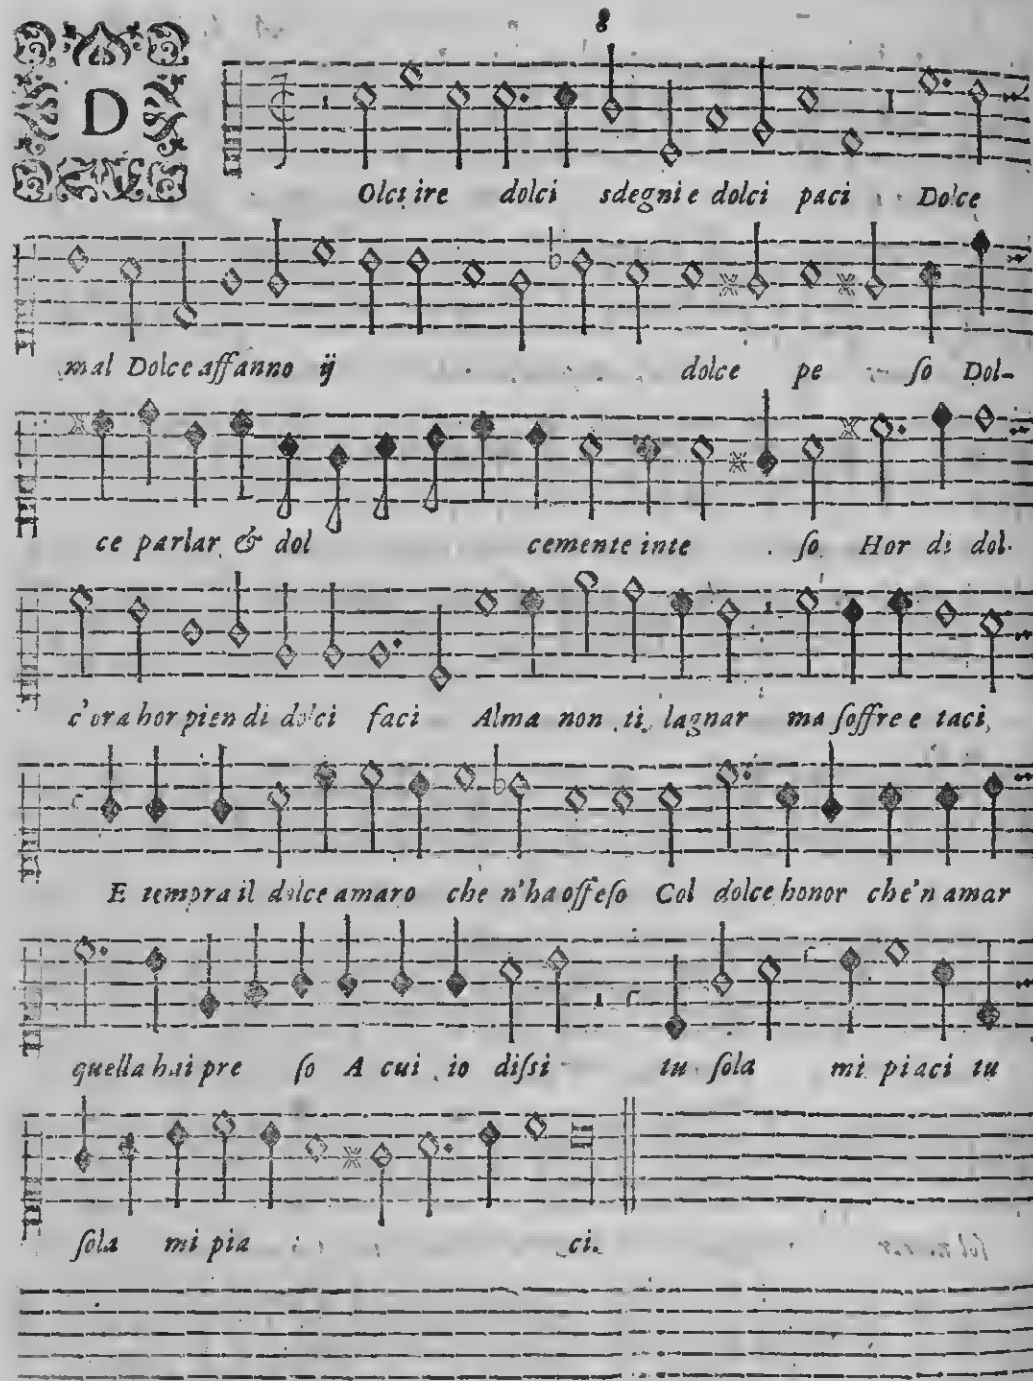 8
D
Olci ire dolci sdegni e dolci paci Dolce
mal Dolce affanno ij dolce pe ſo Dol-
ce parlar & dol cemente inte ſo Hor di dol-
c'ora hor pien di dolci faci Alma non ti lagnar ma ſoffre e taci,
E tempra il dolce amaro che n'ha offeſo Col dolce honor che'n amar
quella hai pre ſo A cui io diſsi tu ſola mi piaci tu
ſola mi pia ci.